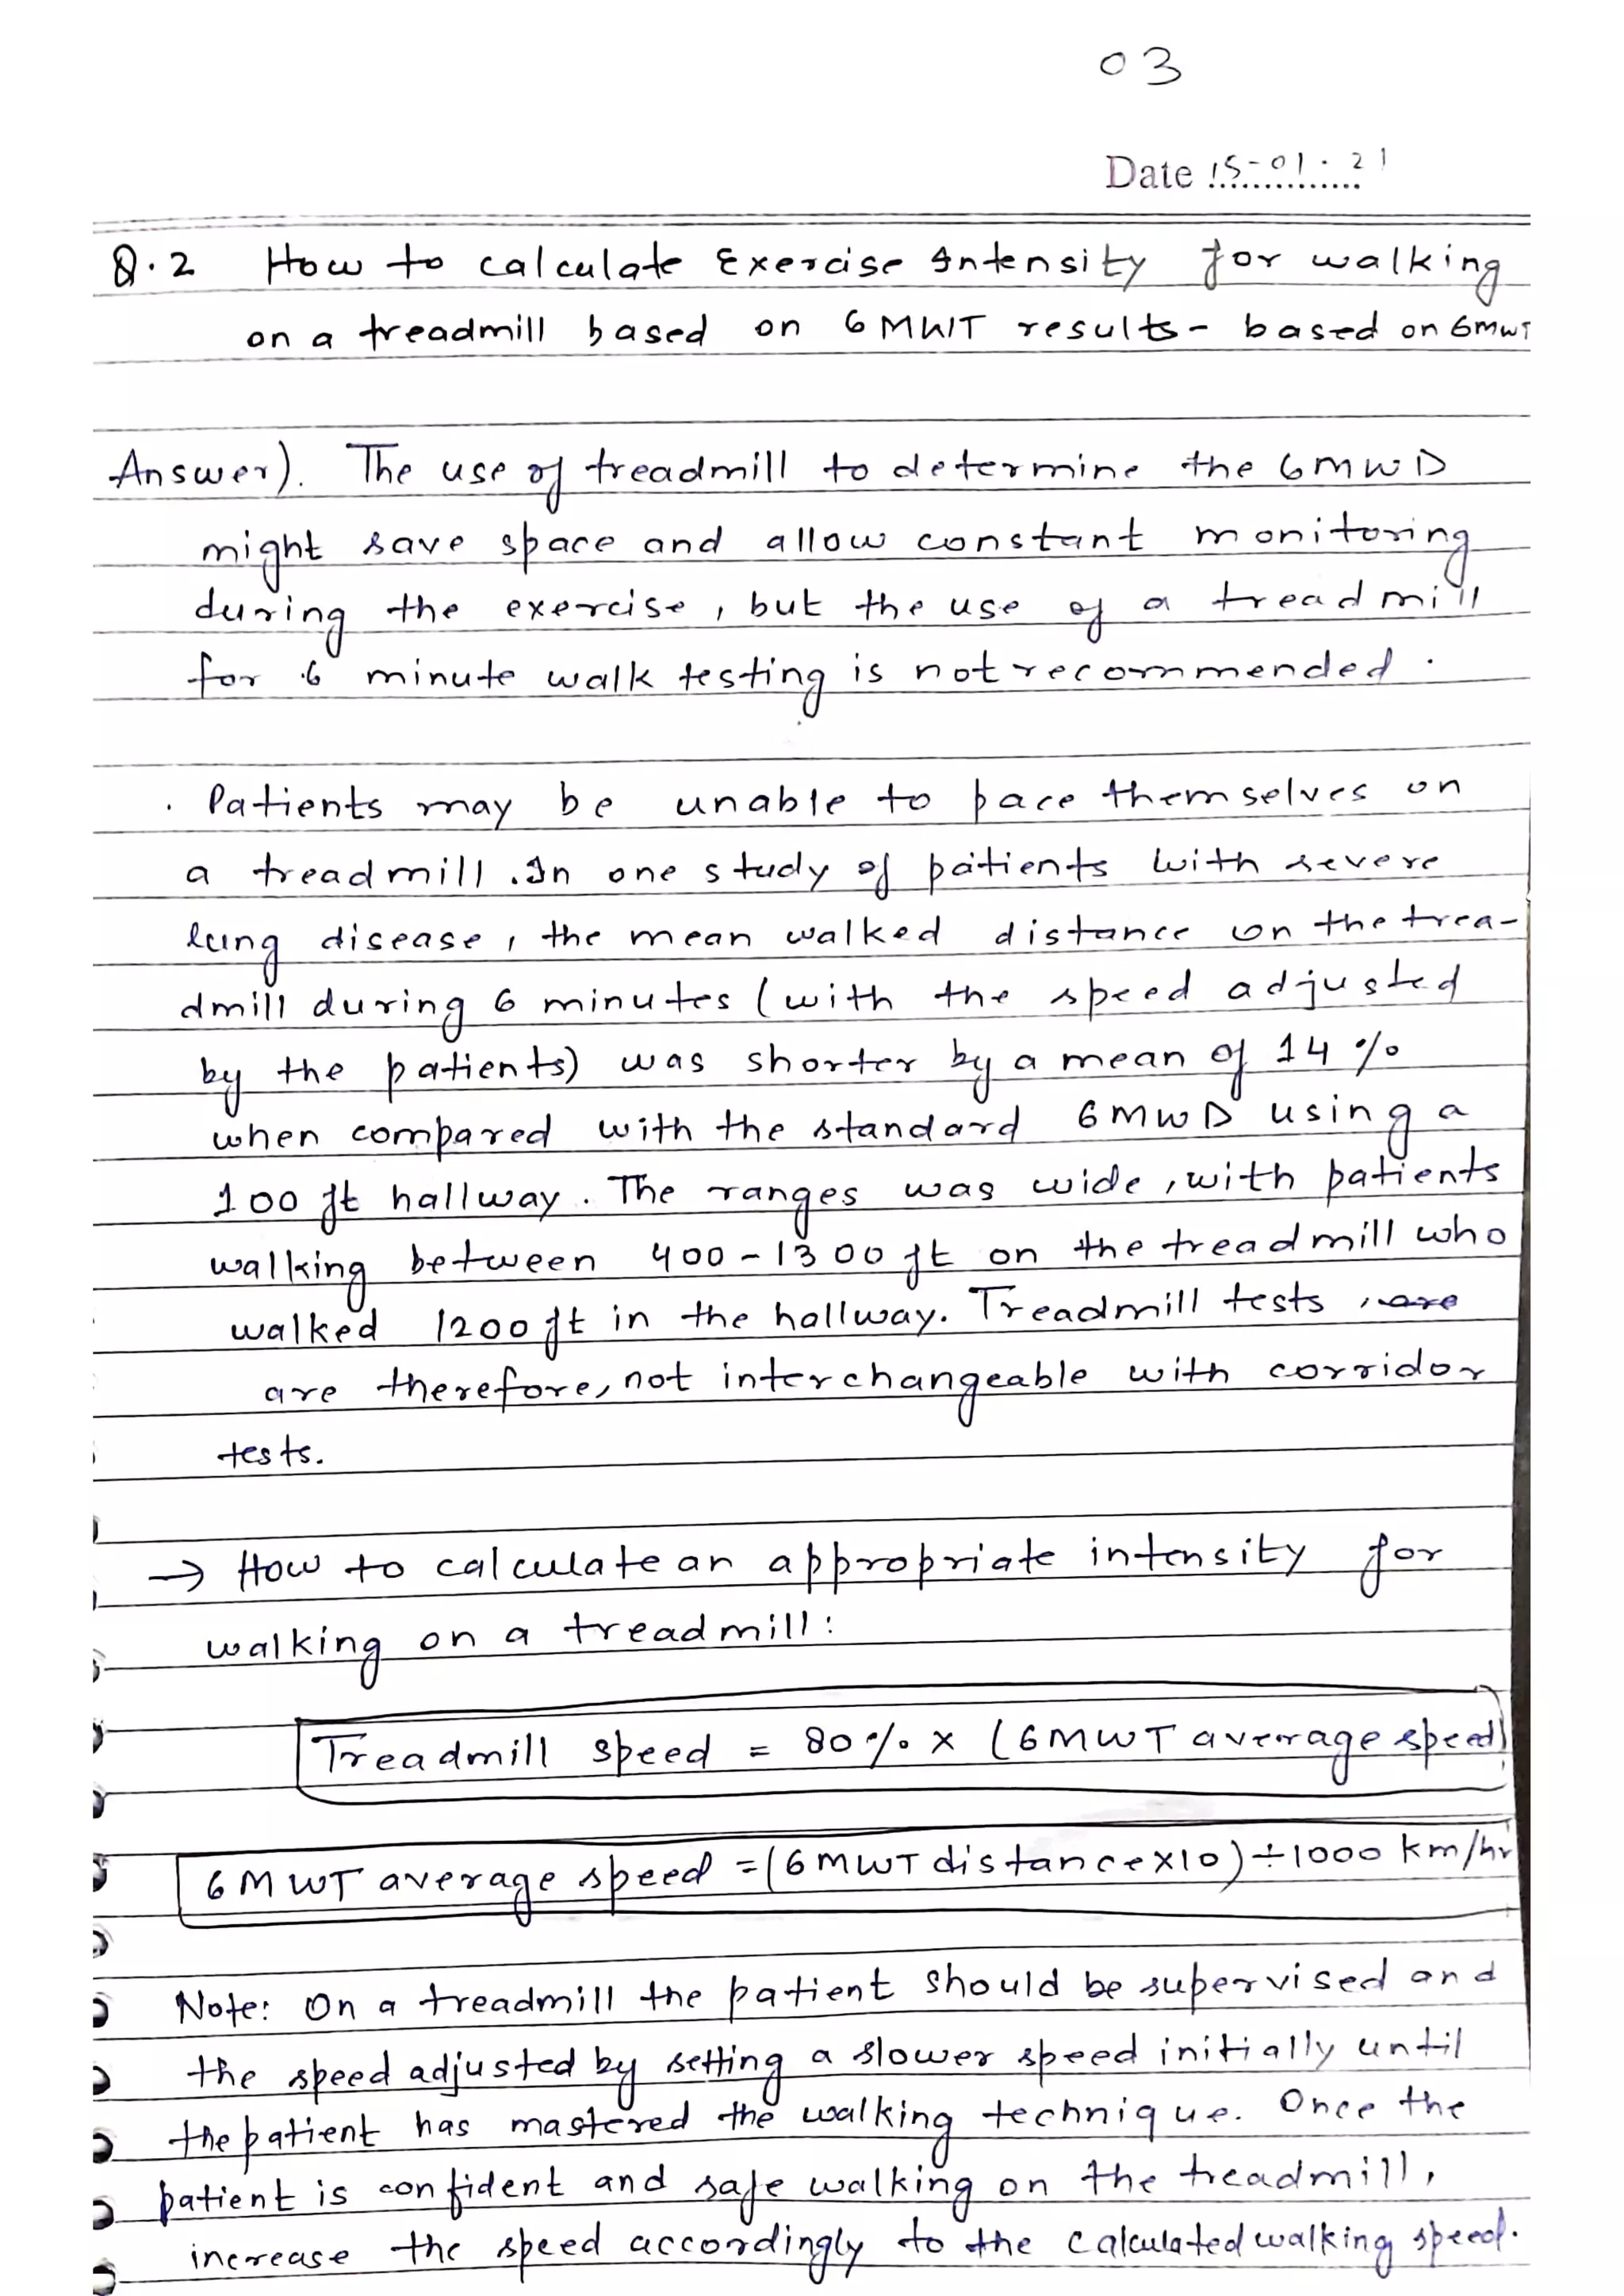 03
Date 15-01.21
Q.2 How to calculate Exercise Intensity for walking
on a treadmill based on 6MWT results - based on 6MWT
Answer). The use of treadmill to determine the 6MWD
might save space and allow constant monitoring
during the exercise, but the use of a treadmill
for 6 minute walk testing is not recommended.
. Patients may be unable to pace themselves on
a treadmill. In one study of patients with severe
lung disease, the mean walked distance on the trea-
dmill during 6 minutes (with the speed adjusted
by the patients) was shorter by a mean of 14%
when compared with the standard 6MWD using a
100 ft hallway. The ranges was wide, with patients
walking between 400-1300 ft on the treadmill who
walked 1200 ft in the hallway. Treadmill tests, are
are therefore, not interchangeable with corridor
tests.
→ How to calculate an appropriate intensity for
walking on a treadmill:
Treadmill speed = 80% x (6MWT average speed)
6MWT average speed = (6MWT distance x10) ÷ 1000 km/hr
Note: On a treadmill the patient should be supervised and
the speed adjusted by setting a slower speed initially until
the patient has mastered the walking technique. Once the
patient is confident and safe walking on the treadmill,
increase the speed accordingly to the calculated walking speed.